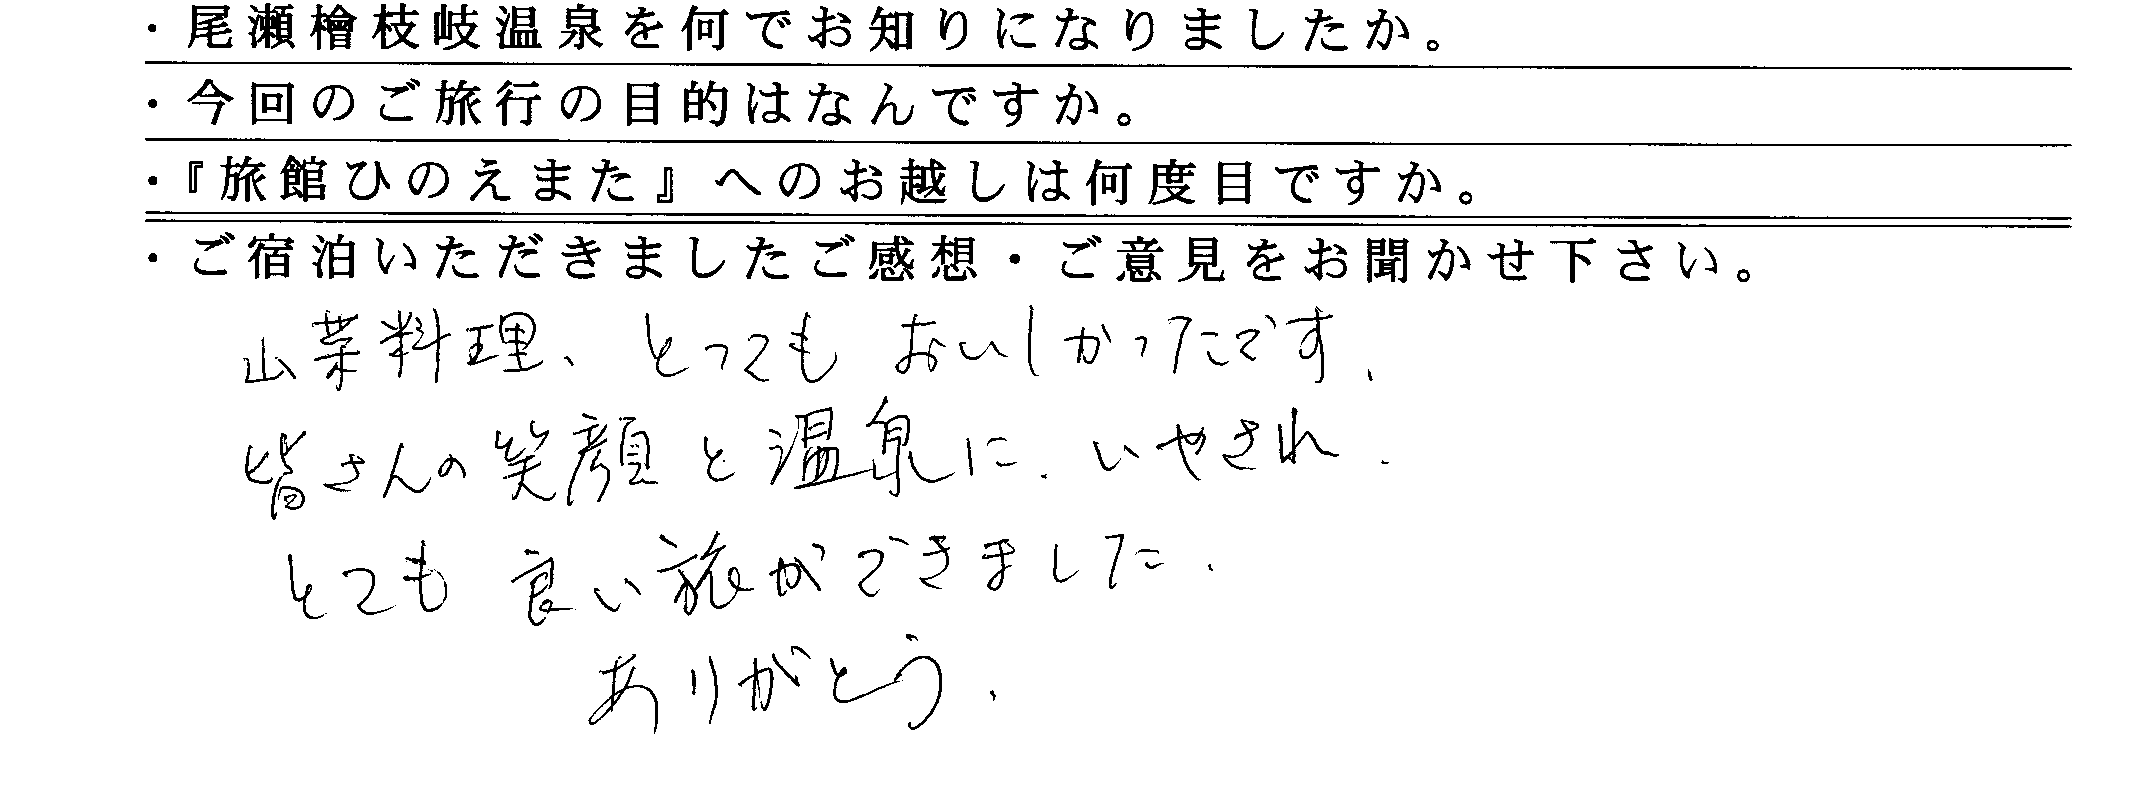 ・尾瀬檜枝岐温泉を何でお知りになりましたか。
・今回のご旅行の目的はなんですか。
・『旅館ひのえまた』へのお越しは何度目ですか。
・ご宿泊いただきましたご感想・ご意見をお聞かせ下さい。
山菜料理、とってもおいしかったです.
皆さんの笑顔と温泉に.いやされ.
とても良い旅ができました.
ありがとう.